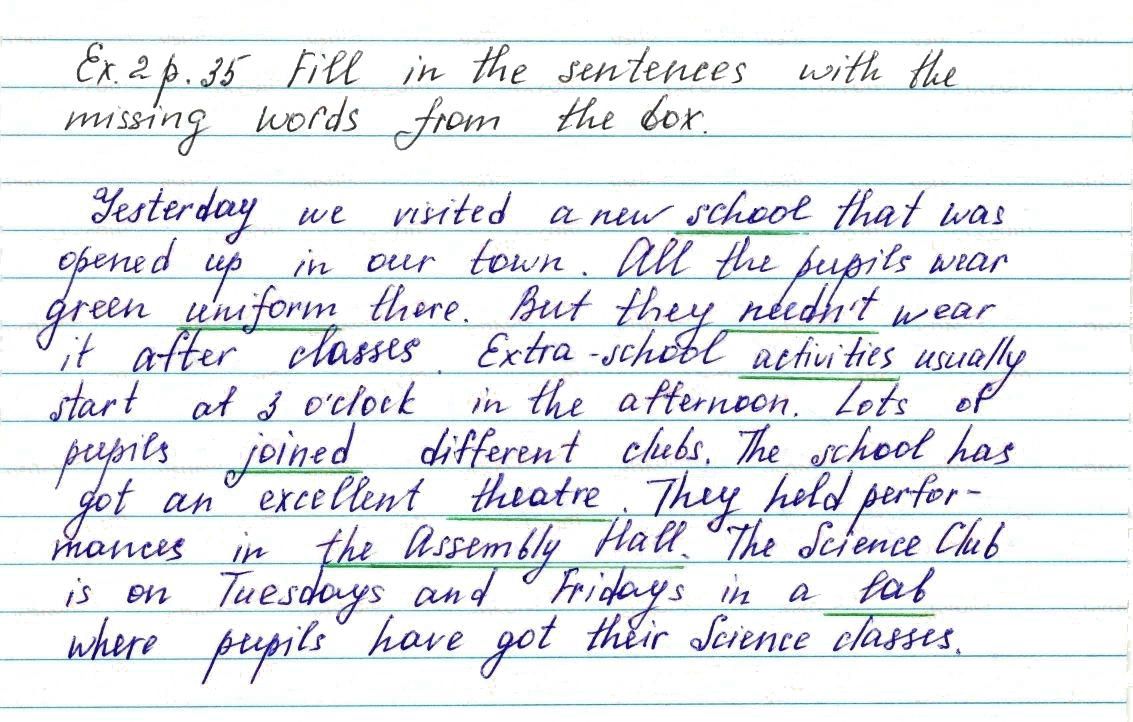 Ex. 2 p. 35 Fill in the sentences with the
missing words from the box.
Yesterday we visited a new school that was
opened up in our town. All the pupils wear
green uniform there. But they needn't wear
it after classes. Extra-school activities usually
start at 3 o'clock in the afternoon. Lots of
pupils joined different clubs. The school has
got an excellent theatre. They hold perfor-
mances in the Assembly Hall. The Science Club
is on Tuesdays and Fridays in a lab
where pupils have got their Science classes.